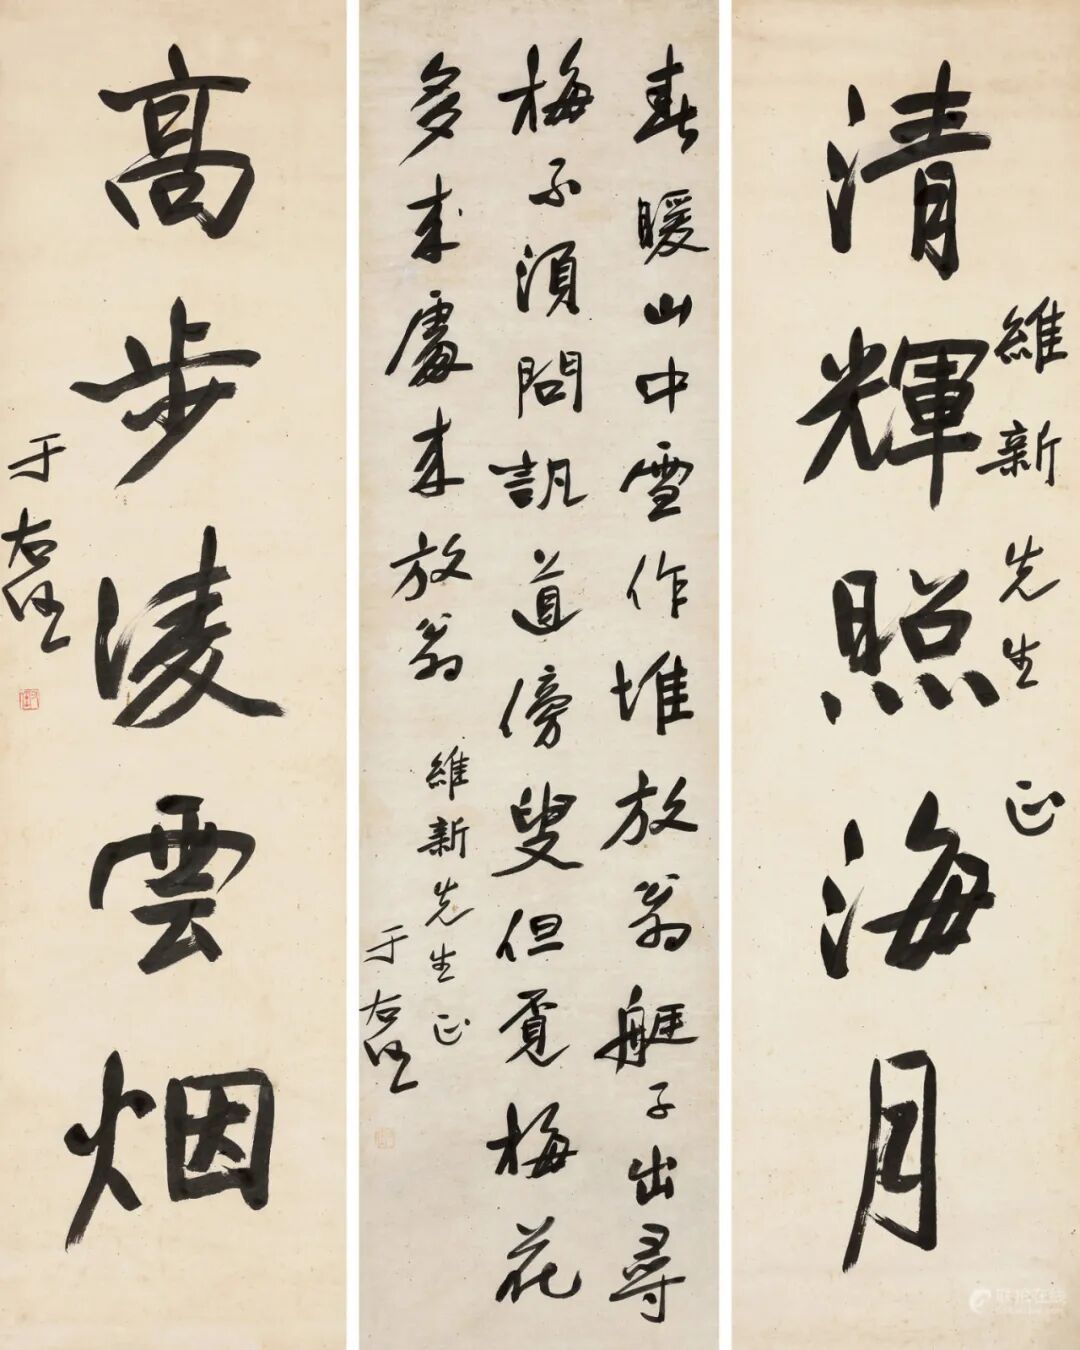 維新先生正
清輝照海月
春暖山中雪作堆放翁艇子出尋
梅不須問訊道傍叟但覓梅花
多來處來放翁
維新先生正
于右任
高步淩雲烟
于右任